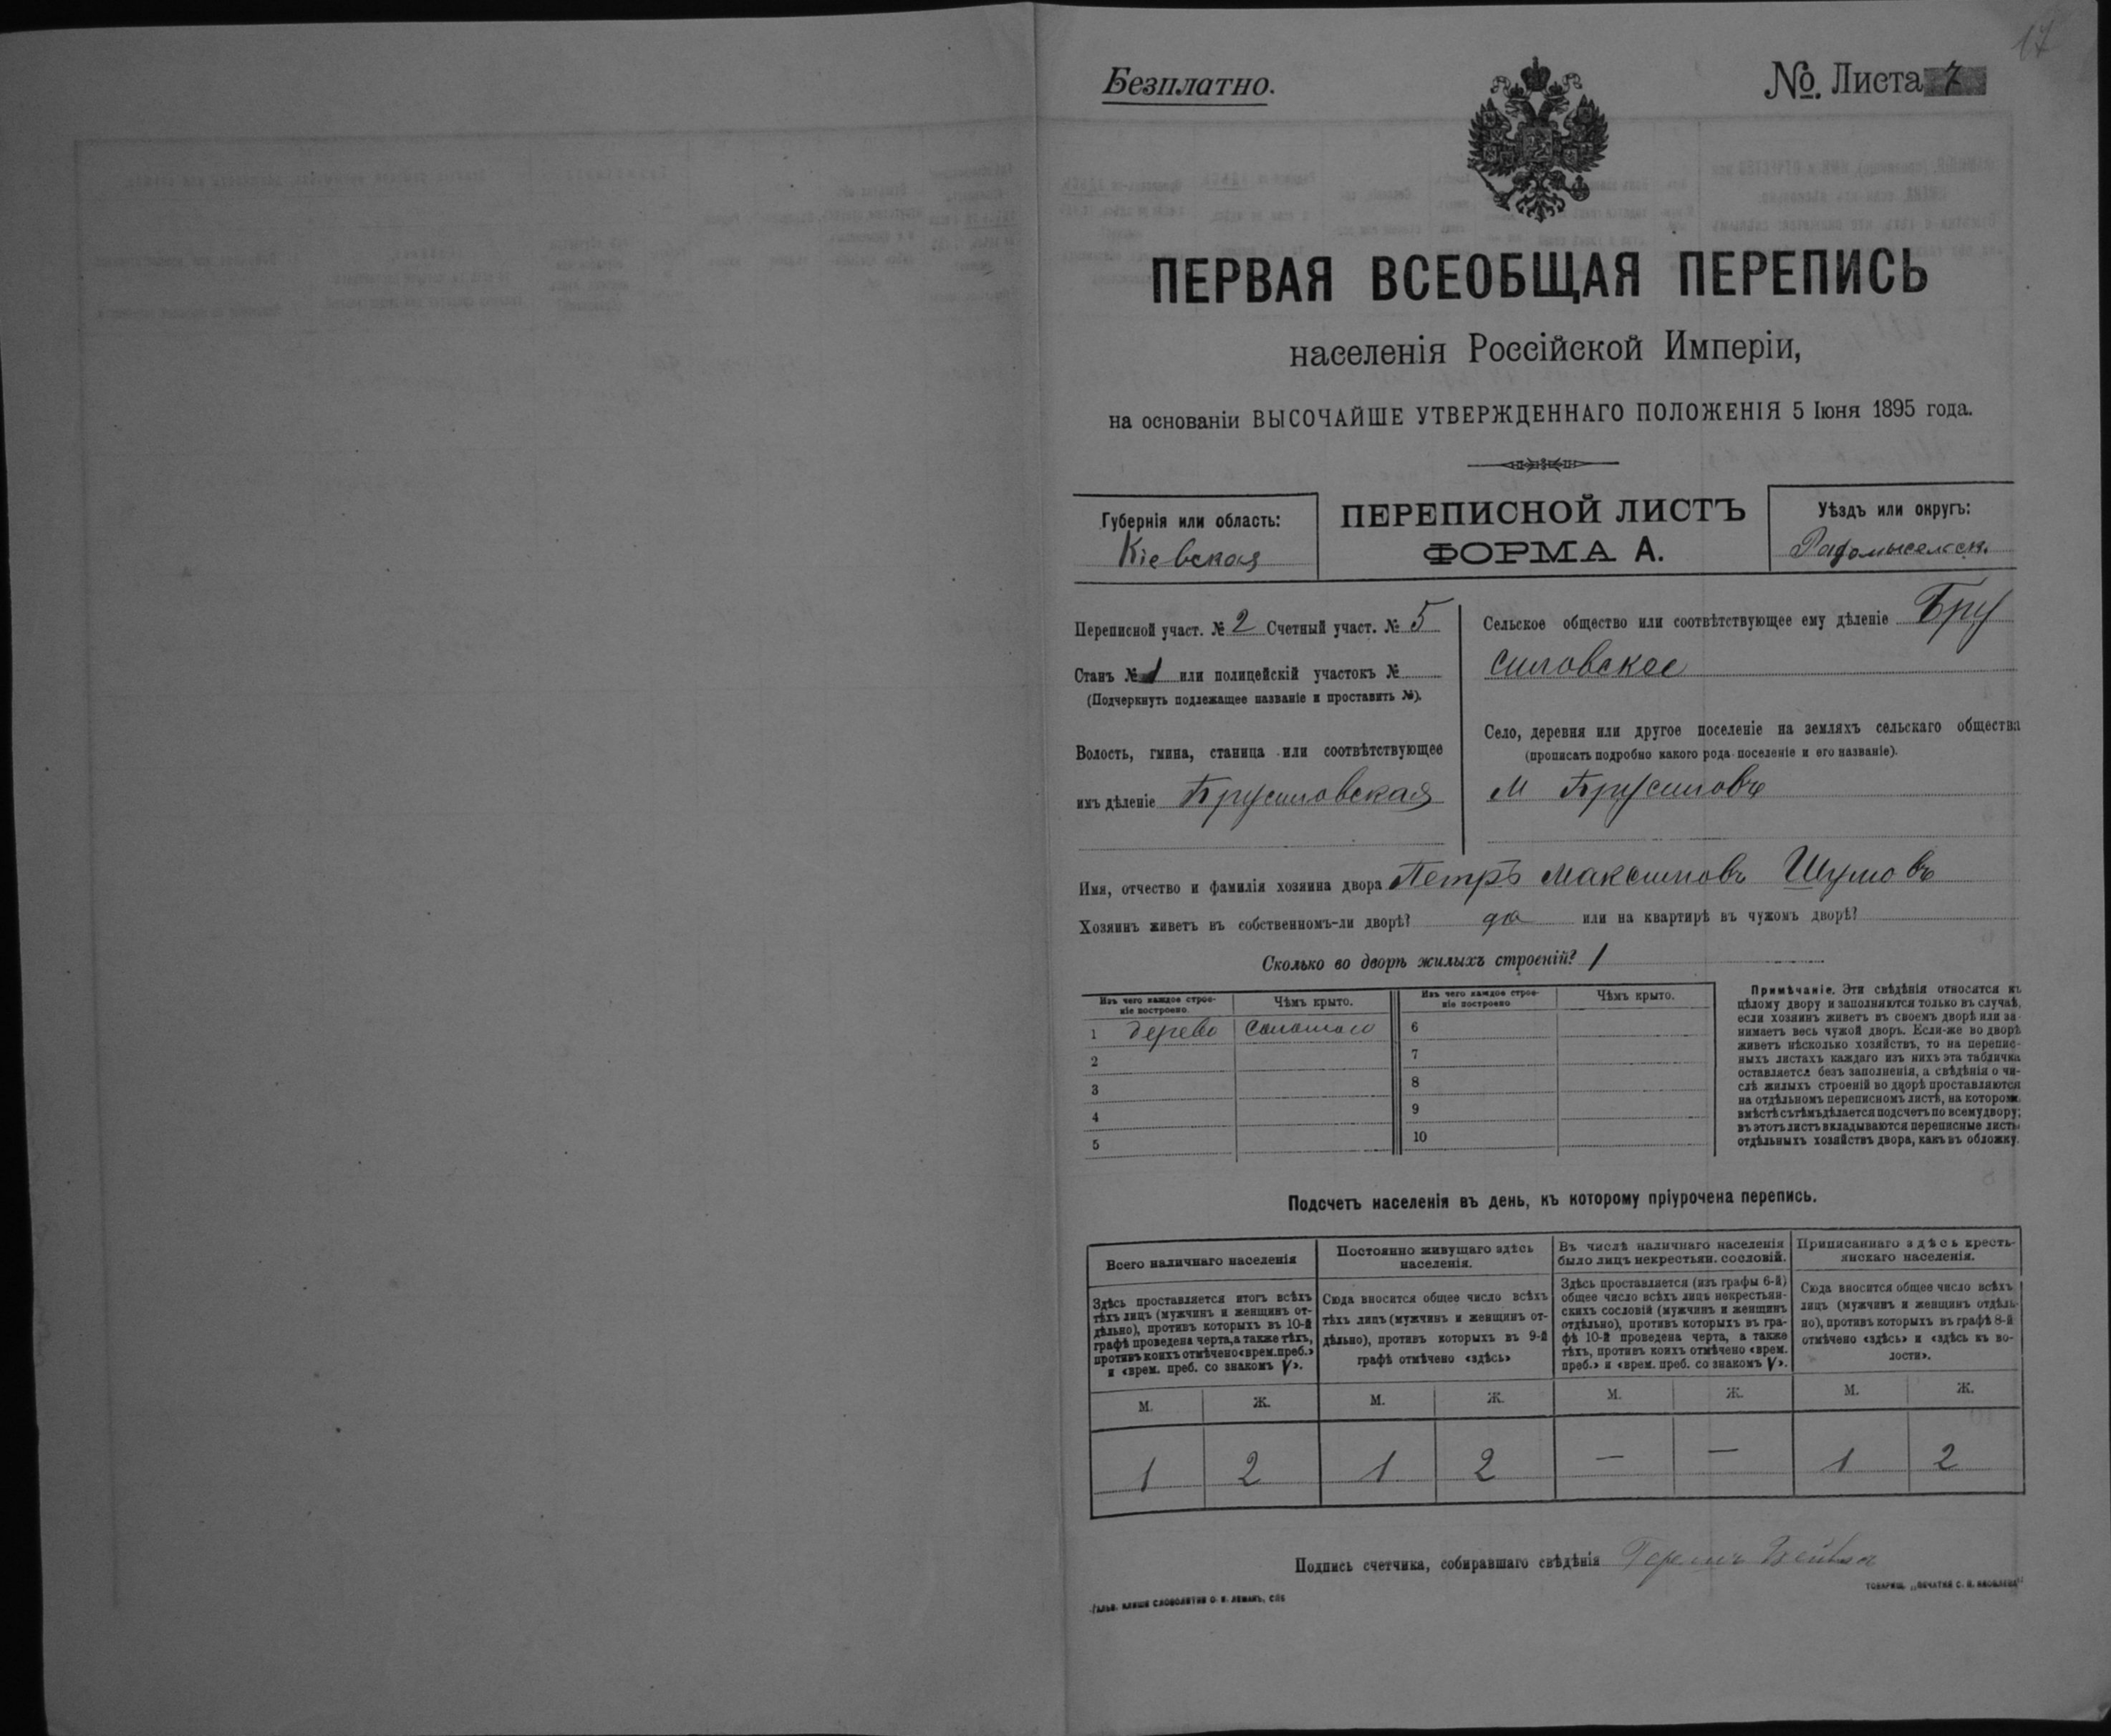 17
Безплатно.
№. Листа 7
ПЕРВАЯ ВСЕОБЩАЯ ПЕРЕПИСЬ
населенія Россійской Имперіи,
на основаніи ВЫСОЧАЙШЕ УТВЕРЖДЕННАГО ПОЛОЖЕНІЯ 5 Іюня 1895 года.
Губернія или область:
Кіевская
ПЕРЕПИСНОЙ ЛИСТЪ
ФОРМА А.
Уѣздъ или округъ:
Радомысельск.
Переписной участ. № 2 Счетный участ. № 5
Станъ № 1 или полицейскій участокъ №
(Подчеркнуть подлежащее названіе и проставить №).
Волость, гмина, станица или соотвѣтствующее
имъ дѣленіе Брусиловская
Сельское общество или соотвѣтствующее ему дѣленіе Бру
силовское
Село, деревня или другое поселеніе на земляхъ сельскаго общества
(прописать подробно какого рода поселеніе и его названіе).
М Брусиловъ
Имя, отчество и фамилія хозяина двора Петръ Максимовъ Шумовъ
Хозяинъ живетъ въ собственномъ-ли дворѣ? да или на квартирѣ въ чужомъ дворѣ?
Сколько во дворѣ жилыхъ строеній? 1
Изъ чего каждое строе-
ніе построено
Чѣмъ крыто.
Изъ чего каждое строе-
ніе построено
Чѣмъ крыто.
1 дерево соломою 6
2 7
3 8
4 9
5 10
Примѣчаніе. Эти свѣдѣнія относятся къ
цѣлому двору и заполняются только въ случаѣ,
если хозяинъ живетъ въ своемъ дворѣ или за-
нимаетъ весь чужой дворъ. Если-же во дворѣ
живетъ нѣсколько хозяйствъ, то на перепис-
ныхъ листахъ каждаго изъ нихъ эта табличка
оставляется безъ заполненія, а свѣдѣнія о чи-
слѣ жилыхъ строеній во дворѣ проставляются
на отдѣльномъ переписномъ листѣ, на которомъ
вмѣстѣ съ тѣмъ дѣлается подсчетъ по всему двору;
въ этотъ листъ вкладываются переписные листы
отдѣльныхъ хозяйствъ двора, какъ въ обложку.
Подсчетъ населенія въ день, къ которому пріурочена перепись.
Всего наличнаго населенія
Здѣсь проставляется итогъ всѣхъ
тѣхъ лицъ (мужчинъ и женщинъ от-
дѣльно), противъ которыхъ въ 10-й
графѣ проведена черта, а также тѣхъ,
противъ коихъ отмѣчено «врем. преб.»
и «врем. преб. со знакомъ V».
Постоянно живущаго здѣсь
населенія.
Сюда вносится общее число всѣхъ
тѣхъ лицъ (мужчинъ и женщинъ от-
дѣльно), противъ которыхъ въ 9-й
графѣ отмѣчено «здѣсь»
Въ числѣ наличнаго населенія
было лицъ некрестьян. сословій.
Здѣсь проставляется (изъ графы 6-й)
общее число всѣхъ лицъ некрестьян-
скихъ сословій (мужчинъ и женщинъ
отдѣльно), противъ которыхъ въ гра-
фѣ 10-й проведена черта, а также
тѣхъ, противъ коихъ отмѣчено «врем.
преб.» и «врем. преб. со знакомъ V».
Приписаннаго здѣсь кресть-
янскаго населенія.
Сюда вносится общее число всѣхъ
лицъ (мужчинъ и женщинъ отдѣль-
но), противъ которыхъ въ графѣ 8-й
отмѣчено «здѣсь» и «здѣсь къ во-
лости».
М. Ж. М. Ж. М. Ж. М. Ж.
1 2 1 2 — — 1 2
Подпись счетчика, собиравшаго свѣдѣнія
ГАЛЬВ. КЛИШЕ СЛОВОЛИТНИ О. И. ЛЕМАНЪ, СПБ
ТОВАРИЩ. „ПЕЧАТНЯ С. П. ЯКОВЛЕВА“